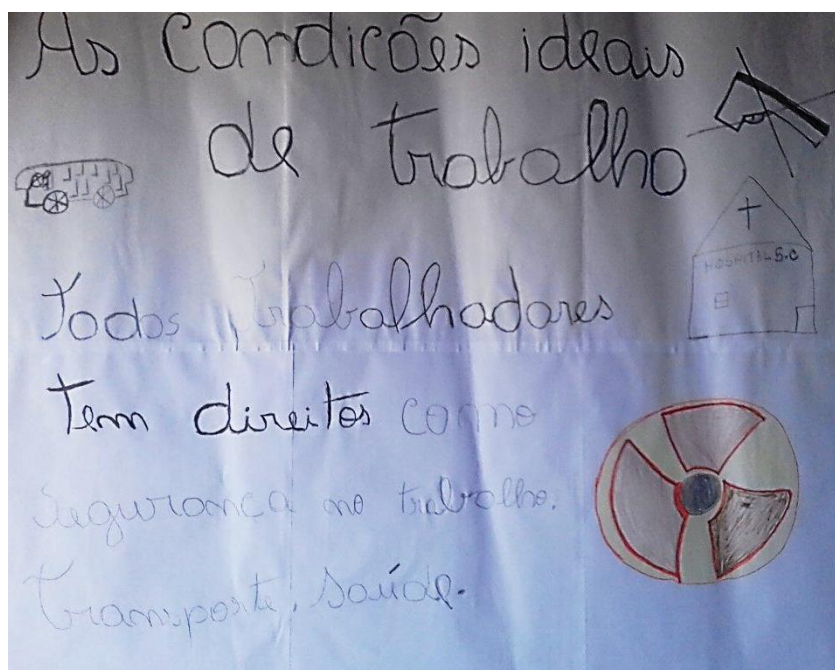 As Condicões ideais
de trabalho
HOSPITAL S.C
Todos Trabalhadores
Tem direitos como
Seguranca no trabalho.
Transporte, Saúde.